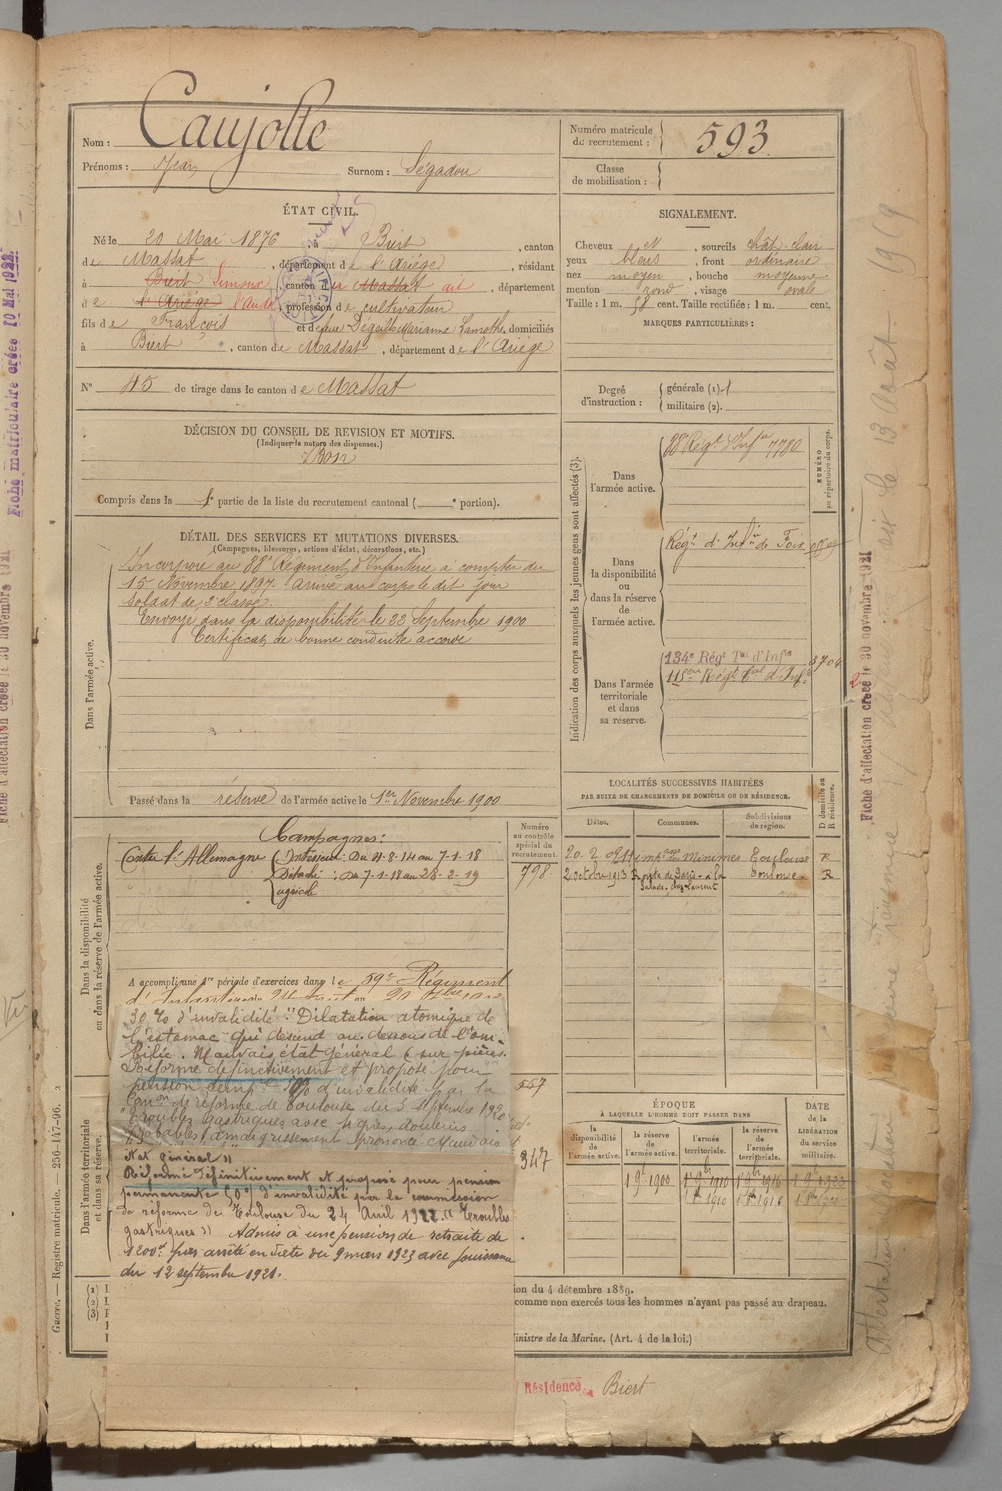 Nom : Caujolle
Prénoms : Jean Surnom : Ségadou
Numéro matricule de recrutement : 593.
Classe de mobilisation :
ÉTAT CIVIL.
Né le 20 Mai 1876, à Biert, canton
de Massat, département de l'Ariège, résidant
à Biert Limoux, canton de Massat, département
de l'Ariège l'Aude, profession de cultivateur
fils de François et de feue Dégeilh Marianne Lamothe, domiciliés
à Biert, canton de Massat, département de l'Ariège
N° 45 de tirage dans le canton de Massat
SIGNALEMENT.
Cheveux N, sourcils chât. clair
yeux bleus, front ordinaire
nez moyen, bouche moyenne
menton rond, visage ovale
Taille : 1 m. 58 cent. Taille rectifiée : 1 m. cent.
MARQUES PARTICULIÈRES :
Degré d'instruction : générale (1).
militaire (2).
DÉCISION DU CONSEIL DE REVISION ET MOTIFS.
(Indiquer la nature des dispenses.)
Bon
Compris dans la 1e partie de la liste du recrutement cantonal ( e portion).
DÉTAIL DES SERVICES ET MUTATIONS DIVERSES.
(Campagnes, blessures, actions d'éclat, décorations, etc.)
Dans l'armée active.
Incorporé au 88e Régiment d'Infanterie à compter du
15 Novembre 1897. Arrivé au corps le dit jour
soldat de 2e classe.
Envoyé dans la disponibilité le 22 Septembre 1900
Certificat de bonne conduite accordé
Passé dans la réserve de l'armée active le 1er Novembre 1900
Indication des corps auxquels les jeunes gens sont affectés (3).
NUMÉRO au répertoire du corps.
Dans l'armée active.
88e Régt d'Infie 7780
Dans la disponibilité ou dans la réserve de l'armée active.
Régt d'Infie de Foix
Dans l'armée territoriale et dans sa réserve.
134e Régt Tal d'Infie
115ème Régt tal d'Infie
LOCALITÉS SUCCESSIVES HABITÉES
PAR SUITE DE CHANGEMENTS DE DOMICILE OU DE RÉSIDENCE.
Dates. Communes. Subdivisions de région. D domicile ou R résidence.
des Minimes Toulouse R
2 octobre 1913 Route de Paris à la Toulouse R
Salade. chez Laurent
Dans la disponibilité ou dans la réserve de l'armée active.
Numéro au contrôle spécial du recrutement.
798
Campagnes :
Contre l'Allemagne Intérieur : Du 4-8-14 au 7-1-18
Détaché : Du 7-1-18 au 28-2-19
agricole
A accompli une 1re période d'exercices dans le 59e Régiment
30 % d'invalidité : "Dilatation atonique de
l'estomac qui descend au dessous de l'om-
bilic. Mauvais état général
Réformé définitivement et proposé pour
pension temp. d'invalidité par la
Comon de réforme de Toulouse du
"Troubles gastriques avec aigres, douleurs
amaigrissement prononcé Mauvais
état général"
Réformé définitivement et proposé pour pension
permanente d'invalidité par la commission
de réforme de Toulouse du 24 Avril 1922. "Troubles
gastriques" Admis à une pension de retraite de
1200f par arrêté en date du 9 mars 1923 avec jouissance
du 12 septembre 1921.
557
347
Dans l'armée territoriale et dans sa réserve.
ÉPOQUE
À LAQUELLE L'HOMME DOIT PASSER DANS
la disponibilité de l'armée active. la réserve de l'armée active. l'armée territoriale. la réserve de l'armée territoriale.
DATE de la LIBÉRATION du service militaire.
1 9bre 1900 1er 9bre 1910 1er 9bre 1916
(1)
(2)
(3)
ion du 4 décembre 1889.
comme non exercés tous les hommes n'ayant pas passé au drapeau.
inistre de la Marine. (Art. 4 de la loi.)
Résidence Biert
Guerre. — Registre matricule. — 256-147-96.
Fiche matriculaire créée 10 Mai 1922.
Fiche d'affectation créée le 30 novembre 1921
Fiche d'affectation créée le 30 novembre 1921